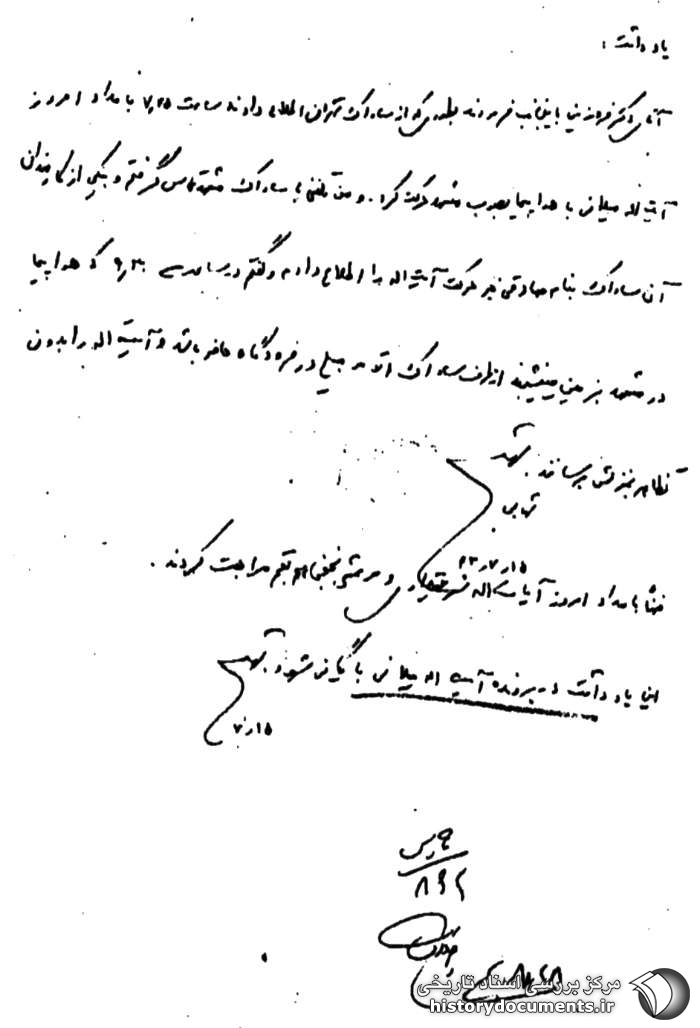 یادداشت :
آقای دکتر فرمودند بطوریکه از ساواک تهران اطلاع دادند ساعت ۷٫۴۵ بامداد امروز
آیت اله میلانی با هواپیما بصوب مشهد حرکت کرد. و من تلفنی با ساواک مشهد تماس گرفتم و بیکی از کارمندان
آن ساواک بنام صادقی خبر حرکت آیت اله را اطلاع دادم و گفتم در ساعت ۹٫۳۰ که هواپیما
در مشهد بزمین مینشیند از طرف ساواک در فرودگاه حاضر باشد و آیت اله را بدون
تظاهر بمنزلش برساند
۱۵ر۷ر۴۳
ضمناً بامداد امروز آیات اله و مرعشی نجفی هم بقم مراجعت کردند .
این یادداشت در پرونده آیت اله میلانی بایگانی شود
۱۵ر۷
۸۹۲
مرکز بررسی اسناد تاریخی
historydocuments.ir